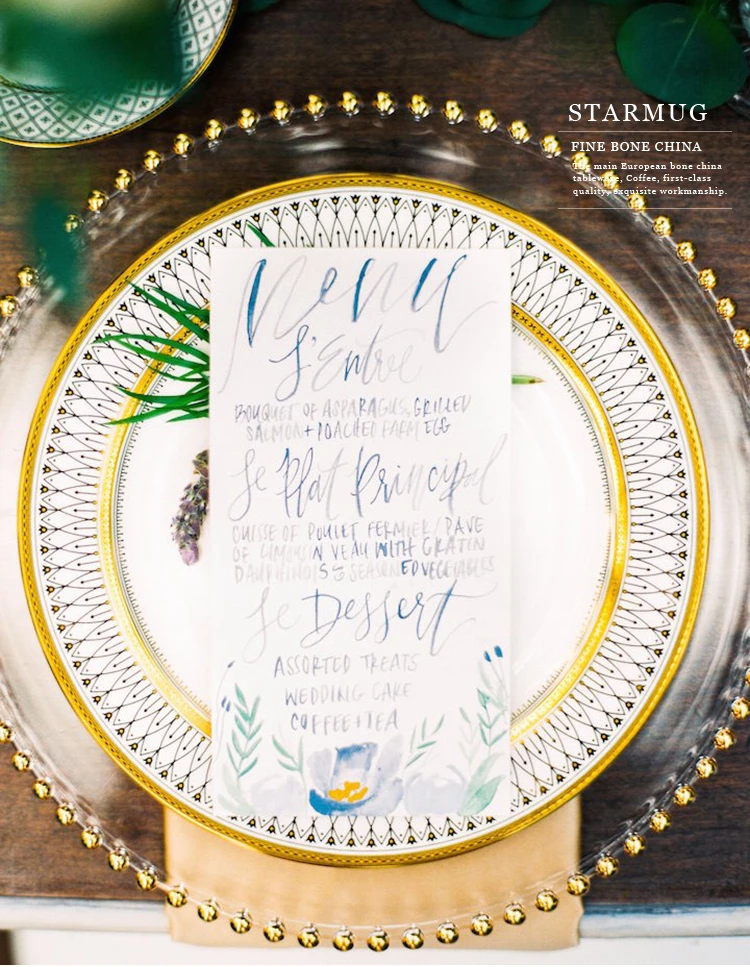 STARMUG
FINE BONE CHINA
The main European bone china
tableware, Coffee, first-class
quality, exquisite workmanship.
Menu
L'Entre
BOUQUET OF ASPARAGUS, GRILLED
SALMON + POACHED FARM EGG
Le Plat Principal
CUISSE OF POULET FERMIER / PAVE
OF LIMOUSIN VEAU WITH GRATIN
DAUPHINOIS & SEASONED VEGETABLES
Le Dessert
ASSORTED TREATS
WEDDING CAKE
COFFEE + TEA